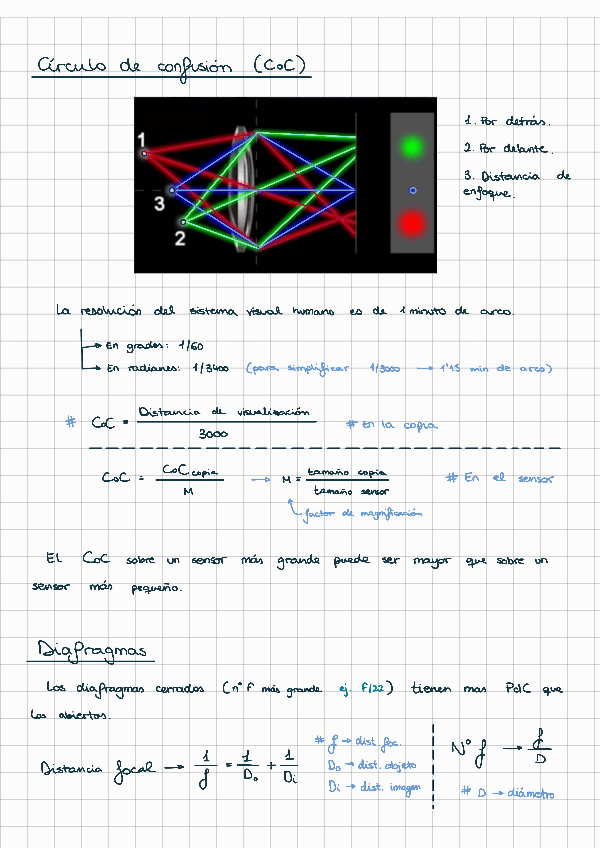 Círculo de confusión (CoC)
1
3
2
1. Por detrás.
2. Por delante.
3. Distancia de
enfoque.
La resolución del sistema visual humano es de 1 minuto de arco.
→ En grados: 1/60
→ En radianes: 1/3400 (para simplificar 1/3000 → 1'15 min de arco)
# CoC = Distancia de visualización / 3000 # En la copia
CoC = CoC copia / M → M = tamaño copia / tamaño sensor # En el sensor
factor de magnificación
El CoC sobre un sensor más grande puede ser mayor que sobre un
sensor más pequeño.
Diafragmas
Los diafragmas cerrados (nº F más grande ej. F/22) tienen mas PdC que
los abiertos.
Distancia focal → 1/f = 1/Do + 1/Di
# f → dist foc.
Do → dist. objeto
Di → dist. imagen
Nº f → f/D
# D → diámetro